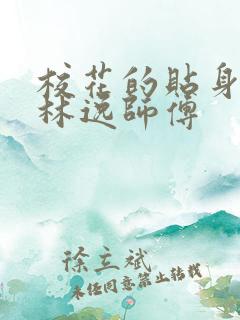 校花的貼身
林逸師傅
徐立斌
未经同意禁止转载